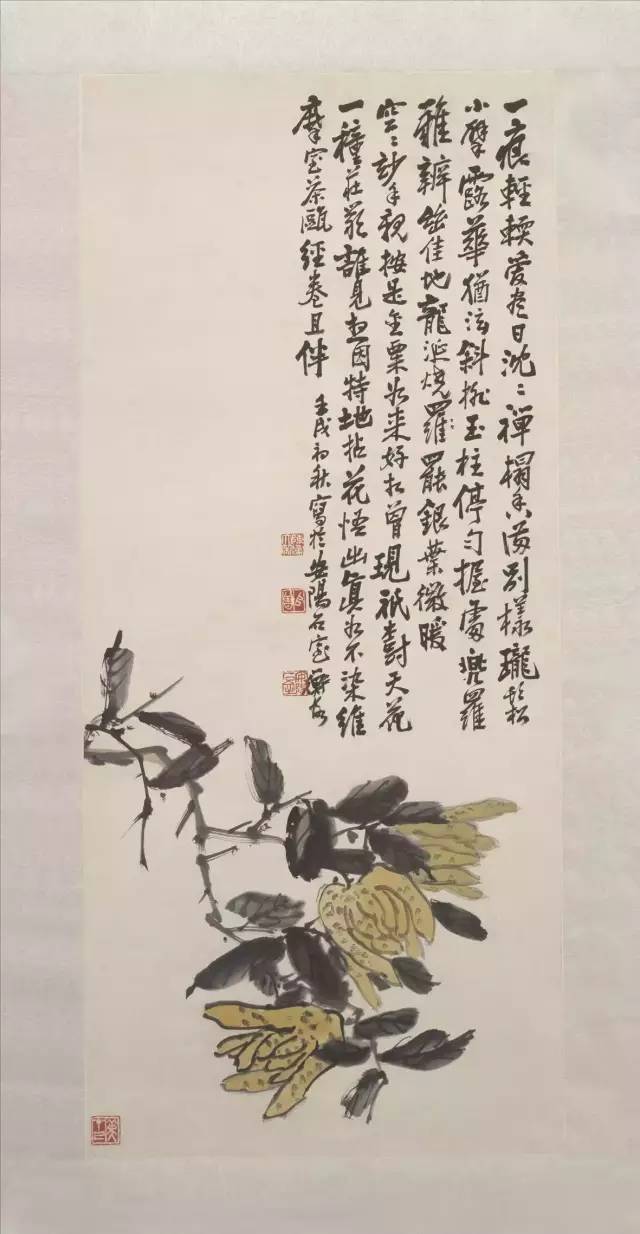 一痕輕輭愛盡日沈沈禪榻香滿別樣瓏鬆
小擘露華猶泫斜 玉柱停勻握處兜羅
難辨 佳地龍涎燒羅罷銀葉微暖
空空妙手親按是金粟如來好相曾現祇樹天花
一種莊嚴誰見想因特地拈花悟出真如不染維
摩室茶甌經卷且伴
壬戌初秋寫於安陽石室 衡恪